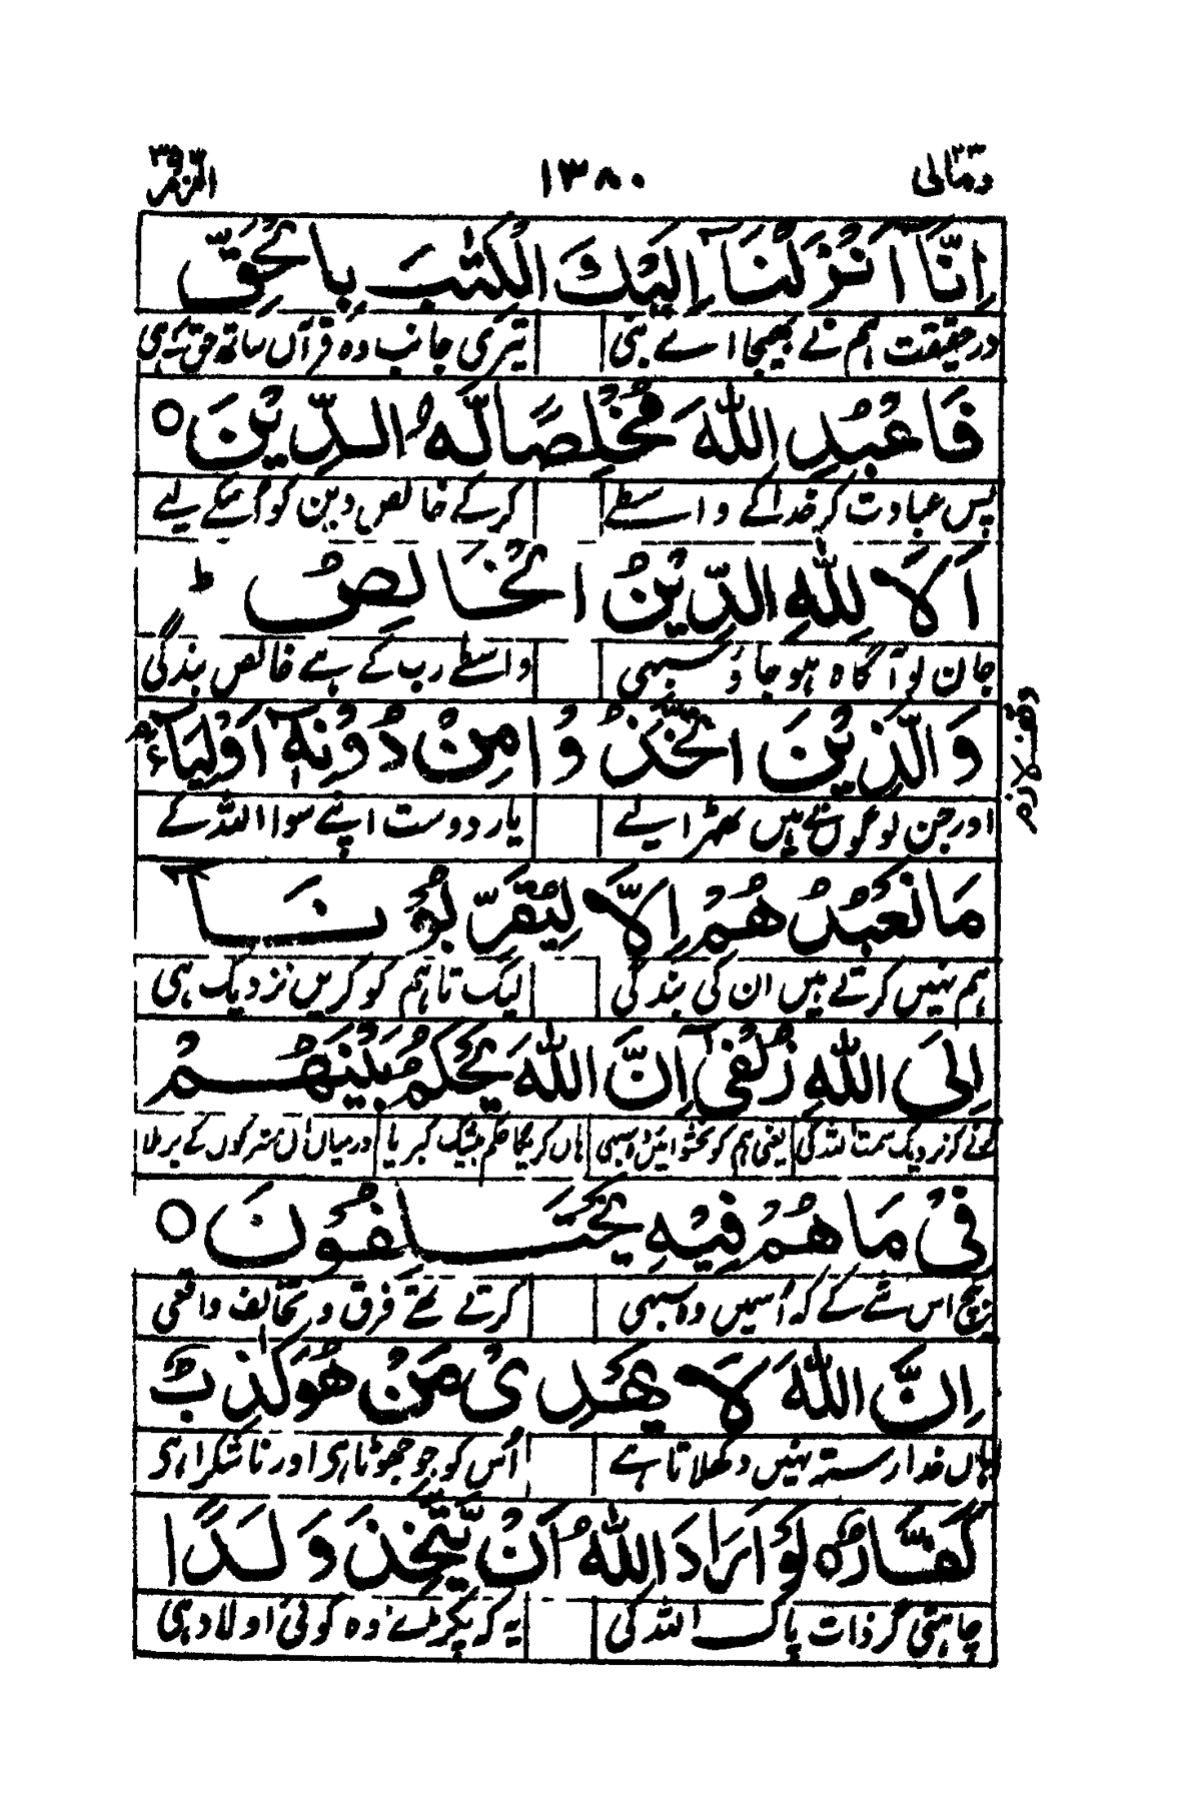 ومالی ۲۳ ۱۳۸۰ الزمر ۳۹
اِنَّاۤ اَنْزَلْنَاۤ اِلَیْكَ الْكِتٰبَ بِالْحَقِّ
درحقیقت ہم نے بھیجا اے نبی تیری جانب وہ قرآں ساتھ حق کے ہی
فَاعْبُدِ اللّٰهَ مُخْلِصًا لَّهُ الدِّیْنَ ○
پس عبادت کر خدا کے واسطے کر کے خالص دین کو اُسکے لیے
اَلَا لِلّٰهِ الدِّیْنُ الْخَالِصُ ؕ
جان لو آگاہ ہو جاؤ سبھی واسطے رب کے ہے خالص بندگی
وَالَّذِیْنَ اتَّخَذُوْا مِنْ دُوْنِهٖۤ اَوْلِیَآءَ ۘ
وقف لازم
اور جن لوگوں نے ہیں ٹھہرا لیے یار دوست اپنے سوا اللہ کے
مَا نَعْبُدُهُمْ اِلَّا لِیُقَرِّبُوْنَاۤ
ہم نہیں کرتے ہیں ان کی بندگی لیک تا ہم کو کریں نزدیک ہی
اِلَی اللّٰهِ زُلْفٰی ؕ اِنَّ اللّٰهَ یَحْكُمُ بَیْنَهُمْ
نزدیک سمت اللہ کی یعنی ہم کو بخشوائیں وہ سبھی ہاں کریگا حکم بیشک کبریا درمیاں اُن مشرکوں کے برملا
فِیْ مَا هُمْ فِیْهِ یَخْتَلِفُوْنَ ○
بیچ اس شے کے کہ اُسمیں وہ سبھی کرتے تھے فرق و تخالف واقعی
اِنَّ اللّٰهَ لَا یَهْدِیْ مَنْ هُوَ كٰذِبٌ
ہاں خدا رستہ نہیں دکھلاتا ہے اُس کو جو جھوٹا ہی اور ناشکرا ہی
كَفَّارٌ ○ لَوْ اَرَادَ اللّٰهُ اَنْ یَّتَّخِذَ وَلَدًا
چاہتی گر ذات پاک اللہ کی یہ کہ پکڑے وہ کوئی اولاد ہی